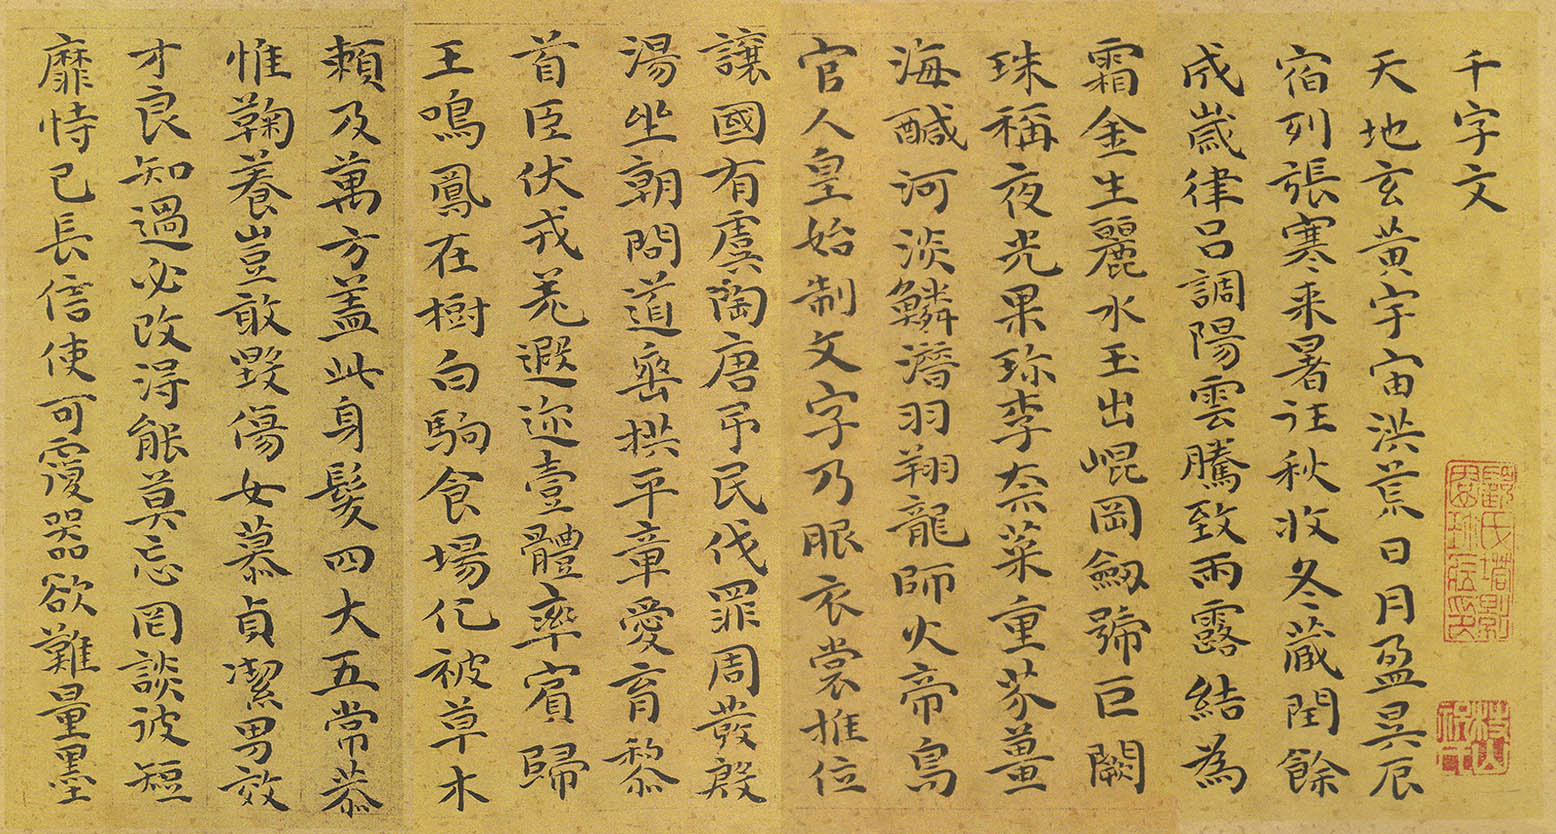 千字文
天地玄黃宇宙洪荒日月盈昃辰
宿列張寒来暑往秋收冬藏閏餘
成歲律呂調陽雲騰致雨露結為
霜金生麗水玉出崐岡劒號巨闕
珠稱夜光果珎李柰菜重芥薑
海醎河淡鱗潛羽翔龍師火帝鳥
官人皇始制文字乃服衣裳推位
讓國有虞陶唐弔民伐罪周發殷
湯坐朝問道垂拱平章愛育黎
首臣伏戎羌遐迩壹體率賓歸
王鳴鳳在樹白駒食場化被草木
賴及萬方盖此身髮四大五常恭
惟鞠養豈敢毀傷女慕貞潔男效
才良知過必改得能莫忘罔談彼短
靡恃己長信使可覆器欲難量墨